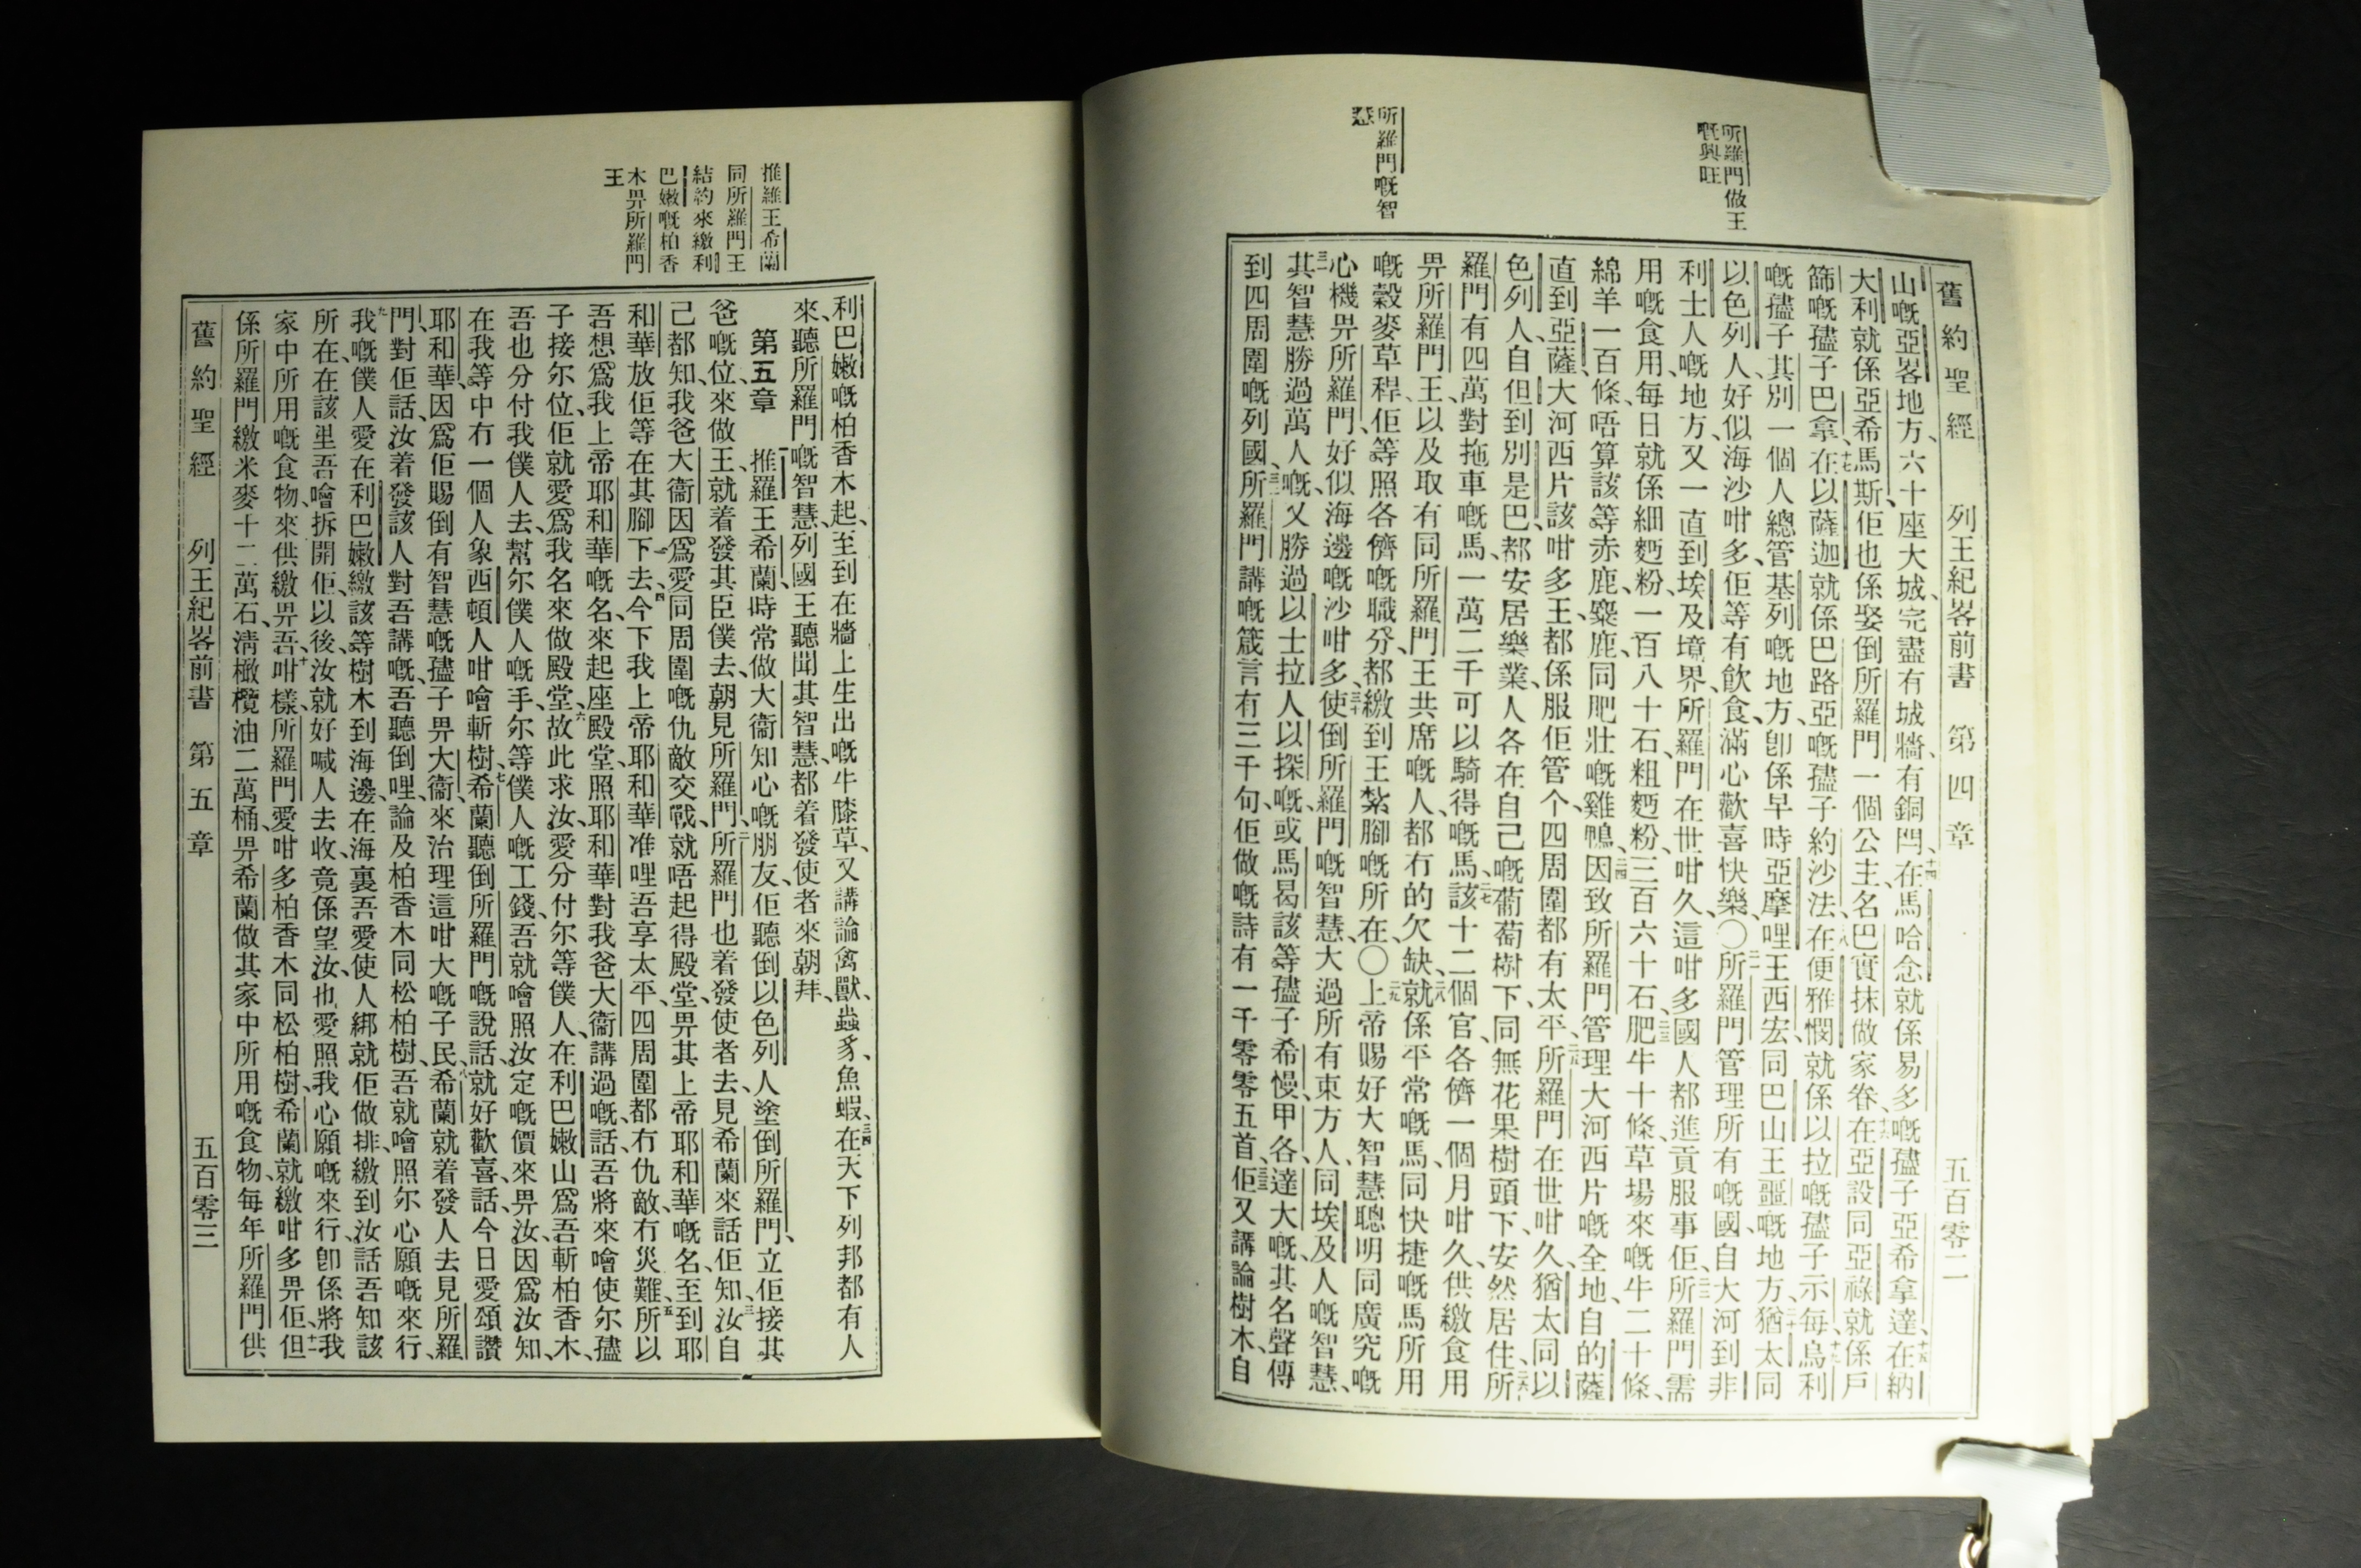 所羅門做王
嘅興旺
所羅門嘅智
慧
舊約聖經 列王紀畧前書 第四章 五百零二
山嘅亞畧地方、六十座大城、完盡有城牆、有銅閂、十四在馬哈念就係易多嘅孻子亞希拿達、十五在納
大利就係亞希馬斯、佢也係娶倒所羅門一個公主、名巴實抹做家眷、十六在亞設同亞祿就係戶
篩嘅孻子巴拿、十七在以薩迦就係巴路亞嘅孻子約沙法、十八在便雅憫就係以拉嘅孻子示每、十九烏利
嘅孻子其別一個人總管基列嘅地方、卽係早時亞摩哩王西宏同巴山王噩嘅地方、二十猶太同
以色列人好似海沙咁多、佢等有飮食、滿心歡喜快樂、〇二一所羅門管理所有嘅國、自大河到非
利士人嘅地方、又一直到埃及境界、所羅門在世咁久、這咁多國人都進貢服事佢、二二所羅門需
用嘅食用、每日就係細麪粉一百八十石、粗麪粉三百六十石、二三肥牛十條、草場來嘅牛二十條、
綿羊一百條、唔算該等赤鹿、麋鹿、同肥壯嘅雞鴨、二四因致所羅門管理大河西片嘅全地、自的薩
直到亞薩、大河西片該咁多王、都係服佢管个、四周圍都有太平、二五所羅門在世咁久、猶太同以
色列人、自但到別是巴、都安居樂業、人各在自己嘅葡萄樹下、同無花果樹頭下、安然居住、二六所
羅門有四萬對拖車嘅馬、一萬二千可以騎得嘅馬、二七該十二個官、各儕一個月咁久、供繳食用
畀所羅門王、以及取有同所羅門王共席嘅人、都冇的欠缺、二八就係平常嘅馬、同快捷嘅馬所用
嘅穀麥草稈、佢等照各儕嘅職分、都繳到王紮腳嘅所在、〇二九上帝賜好大智慧聰明同廣究嘅
心機畀所羅門、好似海邊嘅沙咁多、三十使倒所羅門嘅智慧、大過所有東方人、同埃及人嘅智慧、
三一其智慧勝過萬人嘅、又勝過以士拉人以探嘅、或馬曷該等孻子希慢、甲各、達大嘅、其名聲傳
到四周圍嘅列國、三二所羅門講嘅箴言有三千句、佢做嘅詩有一千零零五首、三三佢又講論樹木、自
推羅王希蘭
同所羅門王
結約來繳利
巴嫩嘅柏香
木畀所羅門
王
利巴嫩嘅柏香木起、至到在牆上生出嘅牛膝草、又講論禽獸、蟲豸、魚蝦、三四在天下列邦都有人
來聽所羅門嘅智慧、列國王聽聞其智慧、都着發使者來朝拜、
第五章 推羅王希蘭、時常做大衞知心嘅朋友、佢聽倒以色列人塗倒所羅門、立佢接其
爸嘅位、來做王、就着發其臣僕去、朝見所羅門、二所羅門也着發使者去、見希蘭來話佢知、三汝自
己都知、我爸大衞因爲愛同周圍嘅仇敵交戰、就唔起得殿堂、畀其上帝耶和華嘅名、至到耶
和華放佢等在其腳下去、四今下我上帝耶和華准哩吾享太平、四周圍都冇仇敵、冇災難、五所以
吾想爲我上帝耶和華嘅名、來起座殿堂、照耶和華對我爸大衞講過嘅話、吾將來噲使尔孻
子接尔位、佢就愛爲我名來做殿堂、六故此求汝、愛分付尔等僕人、在利巴嫩山爲吾斬柏香木、
吾也分付我僕人去、幫尔僕人嘅手、尔等僕人嘅工錢、吾就噲照汝定嘅價來畀汝、因爲汝知、
在我等中冇一個人象西頓人咁噲斬樹、七希蘭聽倒所羅門嘅說話、就好歡喜、話今日愛頌讚
耶和華、因爲佢賜倒有智慧嘅孻子畀大衞、來治理這咁大嘅子民、八希蘭就着發人去見所羅
門、對佢話、汝着發該人對吾講嘅、吾聽倒哩、論及柏香木同松柏樹、吾就噲照尔心願嘅來行、
九我嘅僕人愛在利巴嫩繳該等樹木到海邊、在海裏吾愛使人綁就佢做排、繳到汝話吾知該
所在、在該里吾噲拆開佢、以後、汝就好喊人去收、竟係望汝、也愛照我心願嘅來行、卽係將我
家中所用嘅食物、來供繳畀吾、十咁樣、所羅門愛咁多柏香木同松柏樹、希蘭就繳咁多畀佢、十一但
係所羅門繳米麥十二萬石、淸橄欖油二萬桶、畀希蘭做其家中所用嘅食物、每年所羅門供
舊約聖經 列王紀畧前書 第五章 五百零三